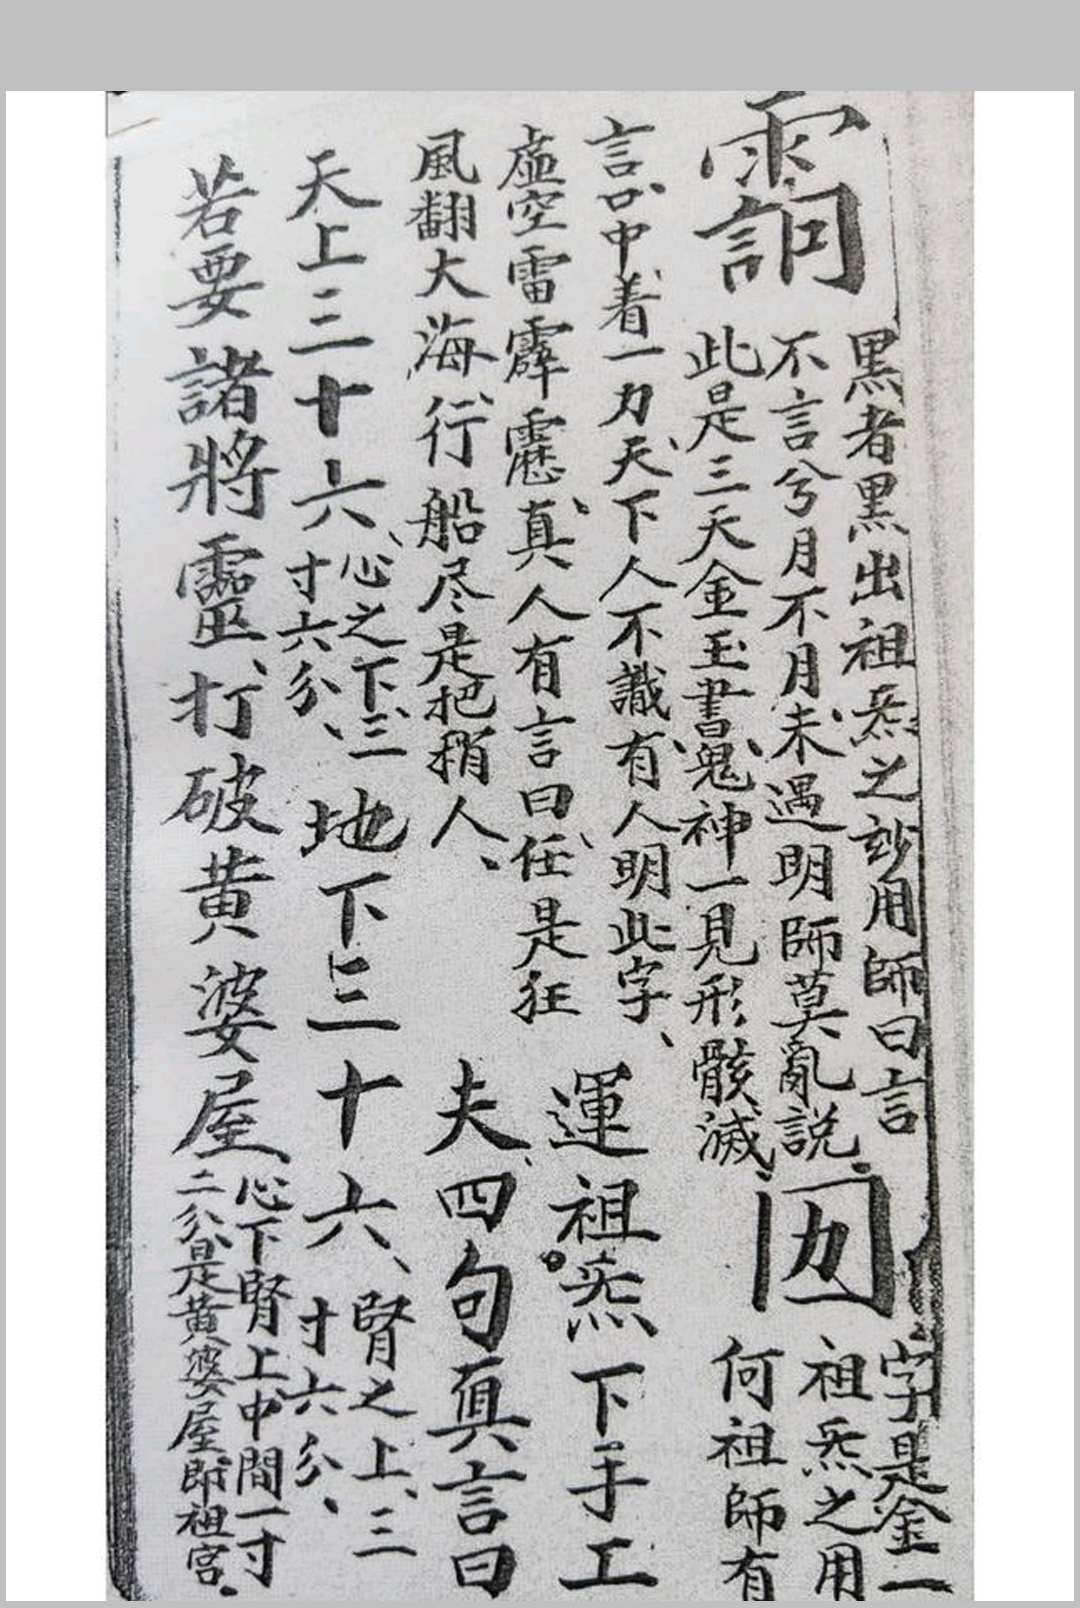 黑者黑出祖炁之玅用師曰言
不言兮月不月、未遇明師莫亂説
此是三天金玉書、鬼神一見形骸滅、
字是金一
祖炁之用
何祖師有
言、口中着一力、天下人不識、有人明此字、
虛空雷霹靂、真人有言曰、任是狂
風翻大海、行船尽是把梢人、
運祖炁下手工
夫、四句真言曰
天上三十六、
心之下、三
寸六分、
地下三十六、
腎之上、三
寸六分、
若要諸將靈、打破黄婆屋
心下腎上中間一寸
二分是黄婆屋即祖宫.